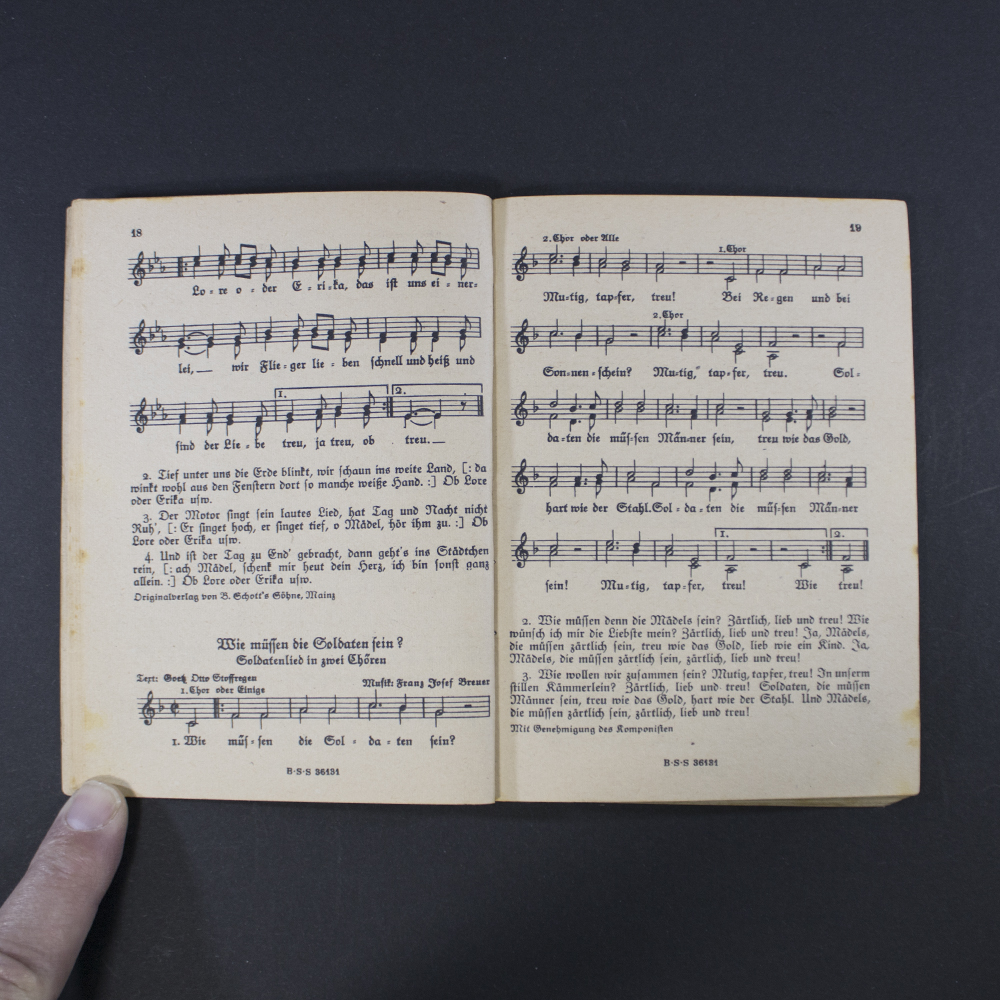 18
Lo = re o = der E = ri = ka, das ist uns ei = ner=
lei, — wir Flie = ger lie = ben schnell und heiß und
1. 2.
sind der Lie = be treu, ja treu, ob treu. —
2. Tief unter uns die Erde blinkt, wir schaun ins weite Land, [: da
winkt wohl aus den Fenstern dort so manche weiße Hand. :] Ob Lore
oder Erika usw.
3. Der Motor singt sein lautes Lied, hat Tag und Nacht nicht
Ruh', [: Er singet hoch, er singet tief, o Mädel, hör ihm zu. :] Ob
Lore oder Erika usw.
4. Und ist der Tag zu End' gebracht, dann geht's ins Städtchen
rein, [: ach Mädel, schenk mir heut dein Herz, ich bin sonst ganz
allein. :] Ob Lore oder Erika usw.
Originalverlag von B. Schott's Söhne, Mainz
Wie müssen die Soldaten sein?
Soldatenlied in zwei Chören
Text: Goetz Otto Stoffregen
Musik: Franz Josef Breuer
1. Chor oder Einige
1. Wie müs = sen die Sol = da = ten sein?
B·S·S 36131
19
2. Chor oder Alle 1. Chor
Mu = tig, tap = fer, treu! Bei Re = gen und bei
2. Chor
Son = nen = schein? Mu = tig, tap = fer, treu. Sol =
da = ten die müs = sen Män = ner sein, treu wie das Gold,
hart wie der Stahl. Sol = da = ten die müs = sen Män = ner
1. 2.
sein! Mu = tig, tap = fer, treu! Wie treu!
2. Wie müssen denn die Mädels sein? Zärtlich, lieb und treu! Wie
wünsch ich mir die Liebste mein? Zärtlich, lieb und treu! Ja, Mädels,
die müssen zärtlich sein, treu wie das Gold, lieb wie ein Kind. Ja,
Mädels, die müssen zärtlich sein, zärtlich, lieb und treu!
3. Wie wollen wir zusammen sein? Mutig, tapfer, treu! In unserm
stillen Kämmerlein? Zärtlich, lieb und treu! Soldaten, die müssen
Männer sein, treu wie das Gold, hart wie der Stahl. Und Mädels,
die müssen zärtlich sein, zärtlich, lieb und treu!
Mit Genehmigung des Komponisten
B·S·S 36131